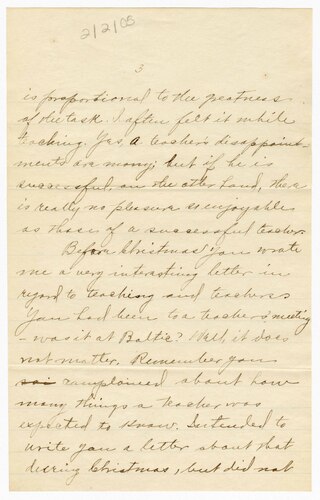 2/2/05
3
is proportional to the greatness
of the task. I often felt it while
teaching. Yes, a teacher's disappoint-
ments are many; but if he is
successful, on the other hand, there
is really no pleasure so enjoyable
as those of a successful teacher.
Before Christmas you wrote
me a very interesting letter in
regard to teaching and teachers.
You had been to a teacher's meeting
- was it at Baltic? Well, it does
not matter. Remember you
complained about how
many things a teacher was
expected to know. Intended to
write you a letter about that
during Christmas, but did not